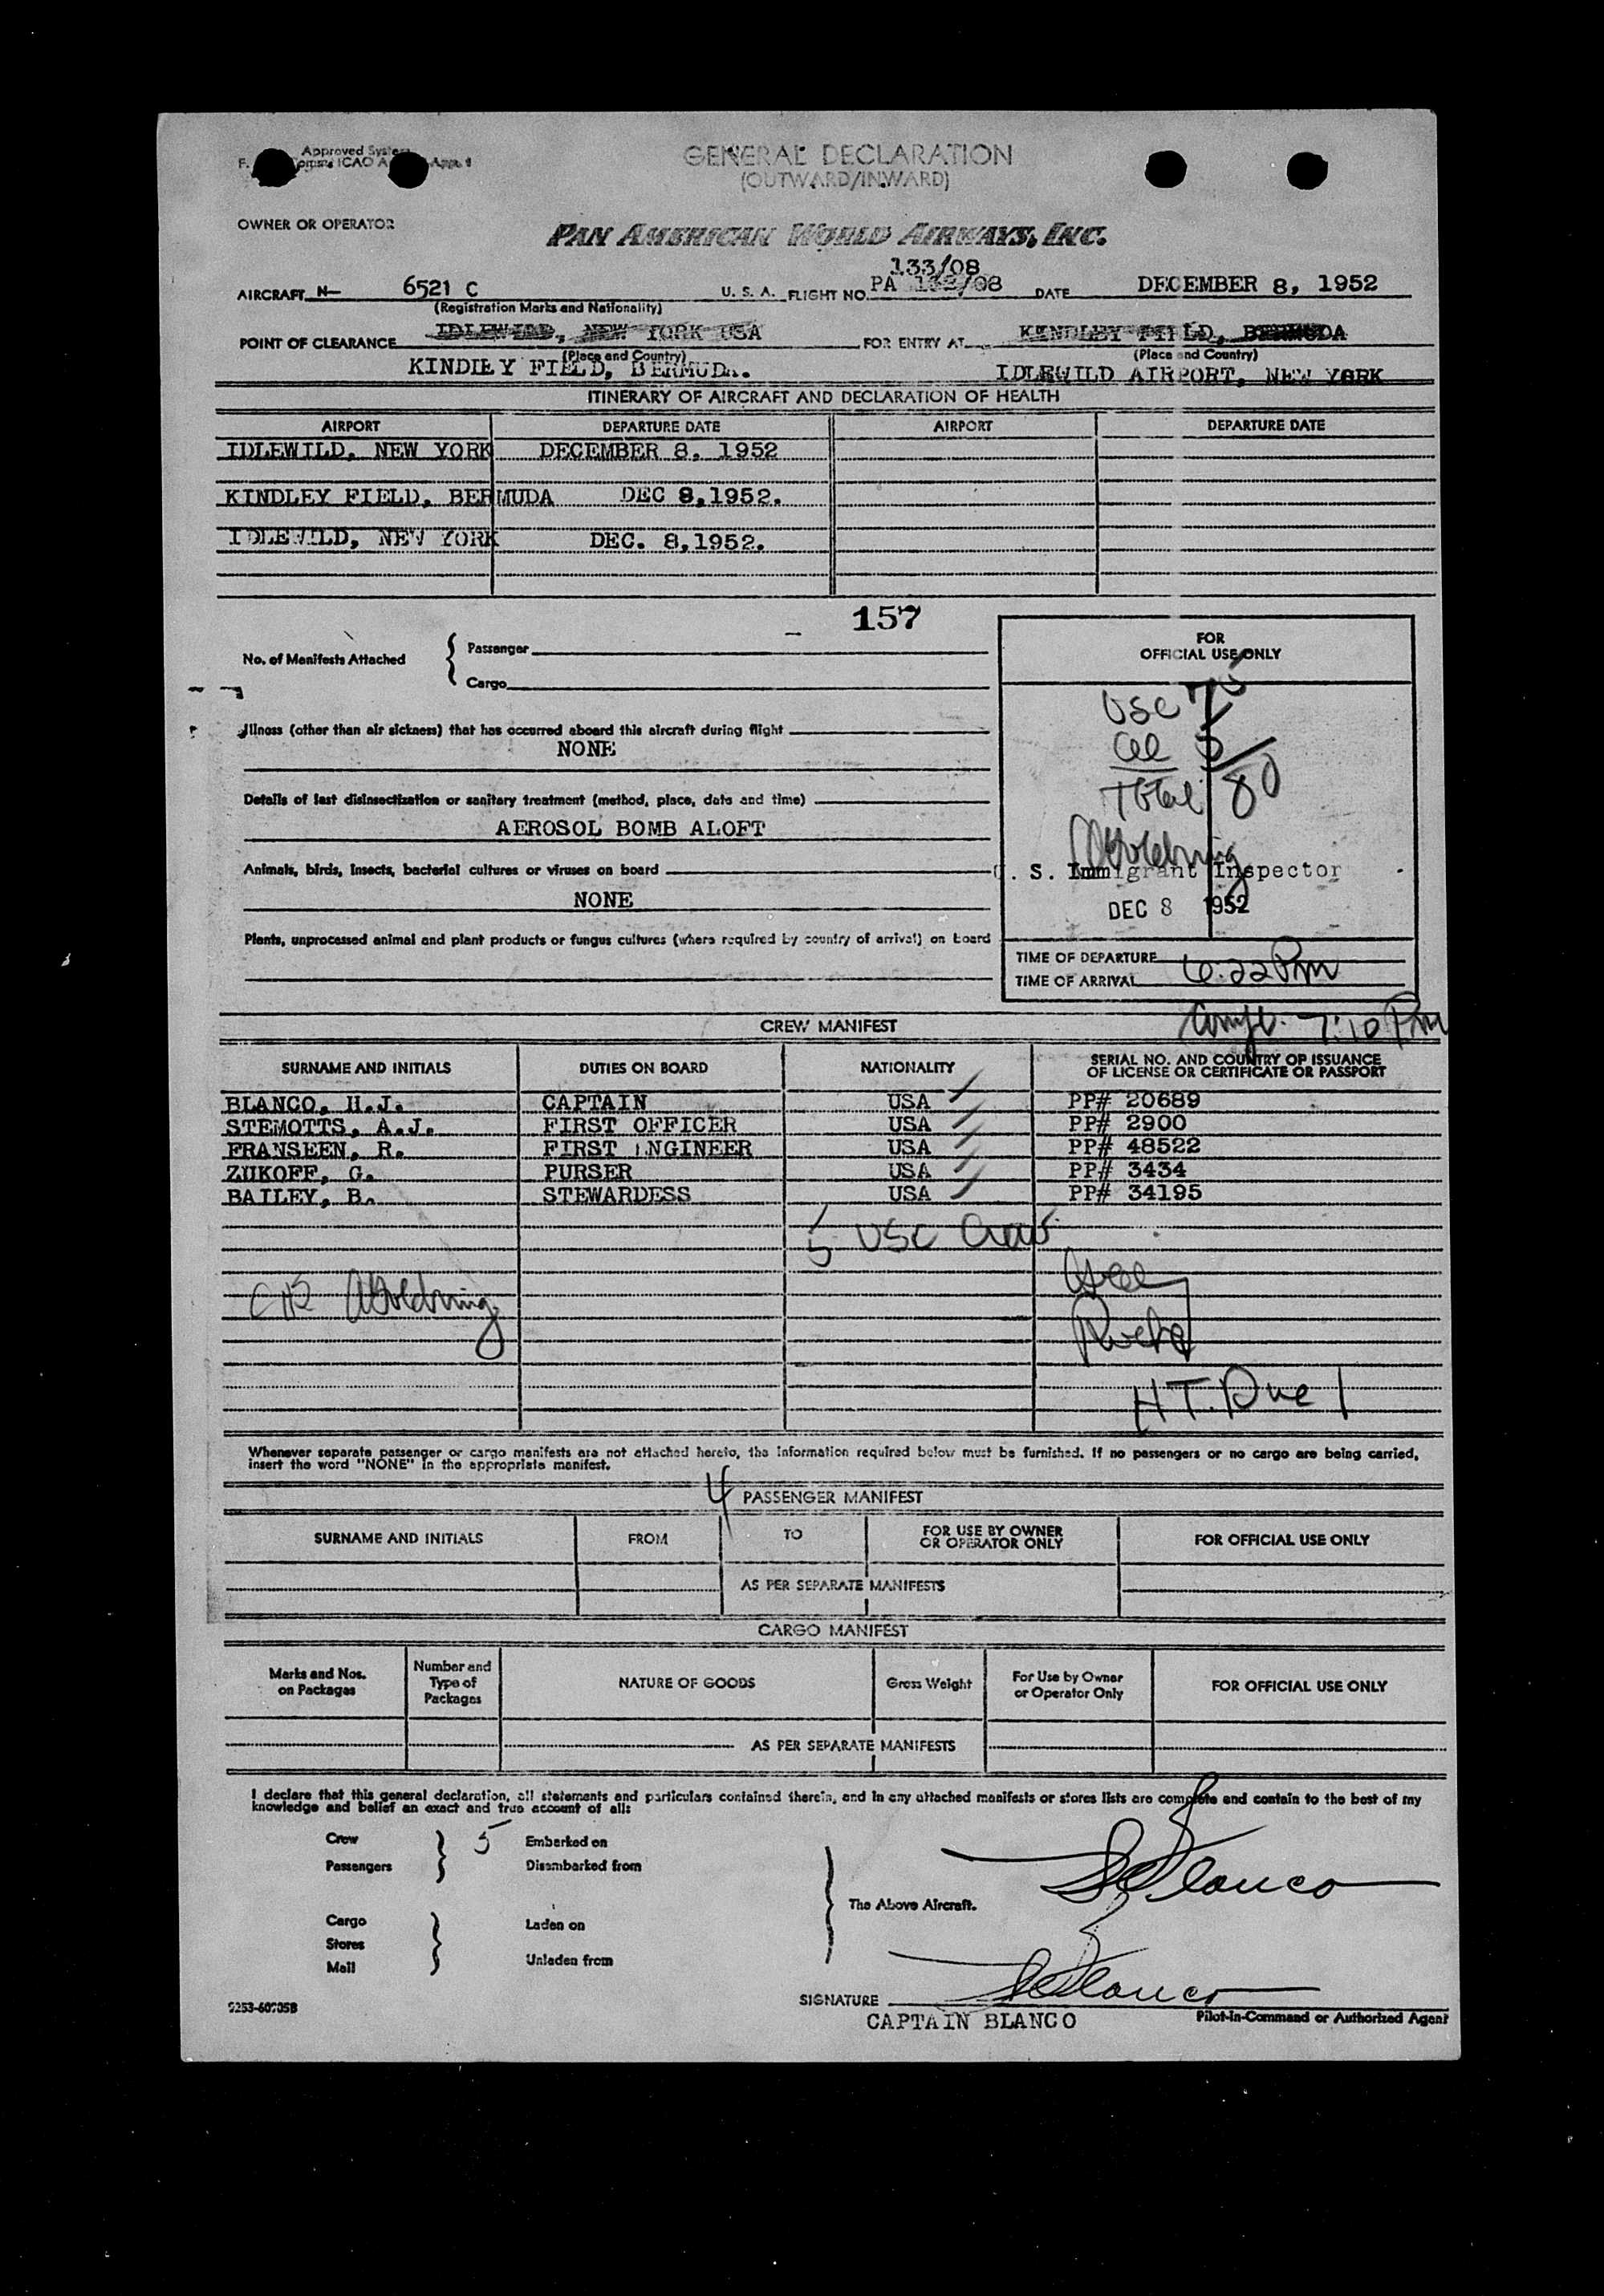 Approved System
GENERAL DECLARATION
(OUTWARD/INWARD)
OWNER OR OPERATOR
PAN AMERICAN WORLD AIRWAYS, INC.
133/08
AIRCRAFT N- 6521 C U. S. A. FLIGHT NO. PA 132/08 DATE DECEMBER 8, 1952
(Registration Marks and Nationality)
POINT OF CLEARANCE IDLEWILD, NEW YORK USA FOR ENTRY AT KINDLEY FIELD, BERMUDA
(Place and Country) (Place and Country)
KINDLEY FIELD, BERMUDA. IDLEWILD AIRPORT, NEW YORK
ITINERARY OF AIRCRAFT AND DECLARATION OF HEALTH
AIRPORT DEPARTURE DATE AIRPORT DEPARTURE DATE
IDLEWILD, NEW YORK DECEMBER 8, 1952
KINDLEY FIELD, BERMUDA DEC 8,1952.
IDLEWILD, NEW YORK DEC. 8,1952.
157
No. of Manifests Attached
Passenger
Cargo
FOR
OFFICIAL USE ONLY
USC 75
5
Total 80
Illness (other than air sickness) that has occurred aboard this aircraft during flight
NONE
Details of last disinsectization or sanitary treatment (method, place, date and time)
AEROSOL BOMB ALOFT
Animals, birds, insects, bacterial cultures or viruses on board
NONE
Plants, unprocessed animal and plant products or fungus cultures (where required by country of arrival) on board
. S. Immigrant Inspector
DEC 8 1952
TIME OF DEPARTURE
TIME OF ARRIVAL 6:22 Pm
7:10 Pm
CREW MANIFEST
SURNAME AND INITIALS DUTIES ON BOARD NATIONALITY SERIAL NO. AND COUNTRY OF ISSUANCE
OF LICENSE OR CERTIFICATE OR PASSPORT
BLANCO, H.J. CAPTAIN USA PP# 20689
STEMOTTS, A.J. FIRST OFFICER USA PP# 2900
FRANSEEN, R. FIRST ENGINEER USA PP# 48522
ZUKOFF, G. PURSER USA PP# 3434
BAILEY, B. STEWARDESS USA PP# 34195
5 USC Crew
HT. Due 1
Whenever separate passenger or cargo manifests are not attached hereto, the information required below must be furnished. If no passengers or no cargo are being carried,
insert the word "NONE" in the appropriate manifest.
4
PASSENGER MANIFEST
SURNAME AND INITIALS FROM TO FOR USE BY OWNER
OR OPERATOR ONLY FOR OFFICIAL USE ONLY
AS PER SEPARATE MANIFESTS
CARGO MANIFEST
Marks and Nos.
on Packages Number and
Type of
Packages NATURE OF GOODS Gross Weight For Use by Owner
or Operator Only FOR OFFICIAL USE ONLY
AS PER SEPARATE MANIFESTS
I declare that this general declaration, all statements and particulars contained therein, and in any attached manifests or stores lists are complete and contain to the best of my
knowledge and belief an exact and true account of all:
Crew 5 Embarked on
Passengers Disembarked from
The Above Aircraft.
Cargo Laden on
Stores
Mail Unladen from
SIGNATURE
CAPTAIN BLANCO Pilot-in-Command or Authorized Agent